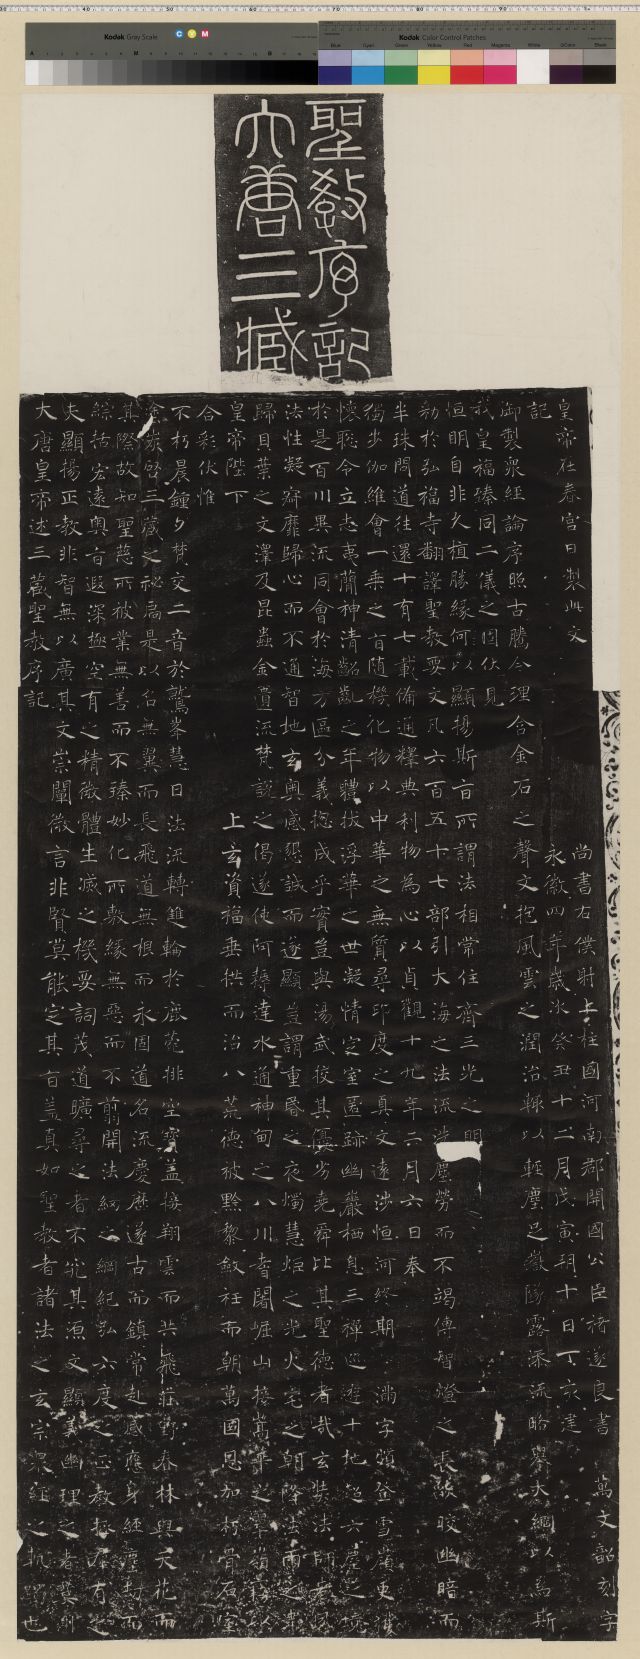 Kodak Gray Scale
C Y M
Kodak Color Control Patches
Blue Cyan Green Yellow Red Magenta White 3/Color Black
大唐三藏
聖教序記
大唐皇帝述三藏聖教序記
夫顯揚正教非智無以廣其文崇闡微言非賢莫能定其旨蓋真如聖教者諸法之玄宗衆經之軌躅也
綜括宏遠奧旨遐深極空有之精微體生滅之機要詞茂道曠尋之者不究其源文顯義幽理之者莫測
其際故知聖慈所被業無善而不臻妙化所敷緣無惡而不翦開法網之綱紀弘六度之正教拯羣有之
塗炭啓三藏之祕扃是以名無翼而長飛道無根而永固道名流慶歷遂古而鎮常赴感應身經塵劫而
不朽晨鐘夕梵交二音於鷲峯慧日法流轉雙輪於鹿菀排空寶蓋接翔雲而共飛莊野春林與天花而
合彩伏惟
皇帝陛下 上玄資福垂拱而治八荒德被黔黎斂衽而朝萬國恩加朽骨石室
歸貝葉之文澤及昆蟲金匱流梵說之偈遂使阿耨達水通神甸之八川耆闍崛山接嵩華之翠嶺竊以
法性凝寂靡歸心而不通智地玄奧感懇誠而遂顯豈謂重昏之夜燭慧炬之光火宅之朝降法雨之澤
於是百川異流同會於海万區分義揔成乎實豈與湯武校其優劣堯舜比其聖德者哉玄奘法師者夙
懷聰令立志夷簡神清齠齔之年體拔浮華之世凝情定室匿跡幽巖栖息三禪巡遊十地超六塵之境
獨步伽維會一乘之旨隨機化物以中華之無質尋印度之真文遠涉恒河終期滿字頻登雪嶺更獲
半珠問道往還十有七載備通釋典利物為心以貞觀十九年二月六日奉
勑於弘福寺翻譯聖教要文凡六百五十七部引大海之法流洗塵勞而不竭傳智燈之長焰皎幽暗而
恒明自非久植勝緣何以顯揚斯旨所謂法相常住齊三光之明
我皇福臻同二儀之固伏見
御製衆經論序照古騰今理含金石之聲文抱風雲之潤治輒以輕塵足嶽墜露添流略舉大綱以為斯
記
皇帝在春宮日製此文
永徽四年歲次癸丑十二月戊寅朔十日丁亥建
尚書右僕射上柱國河南郡開國公臣褚遂良書 萬文韶刻字